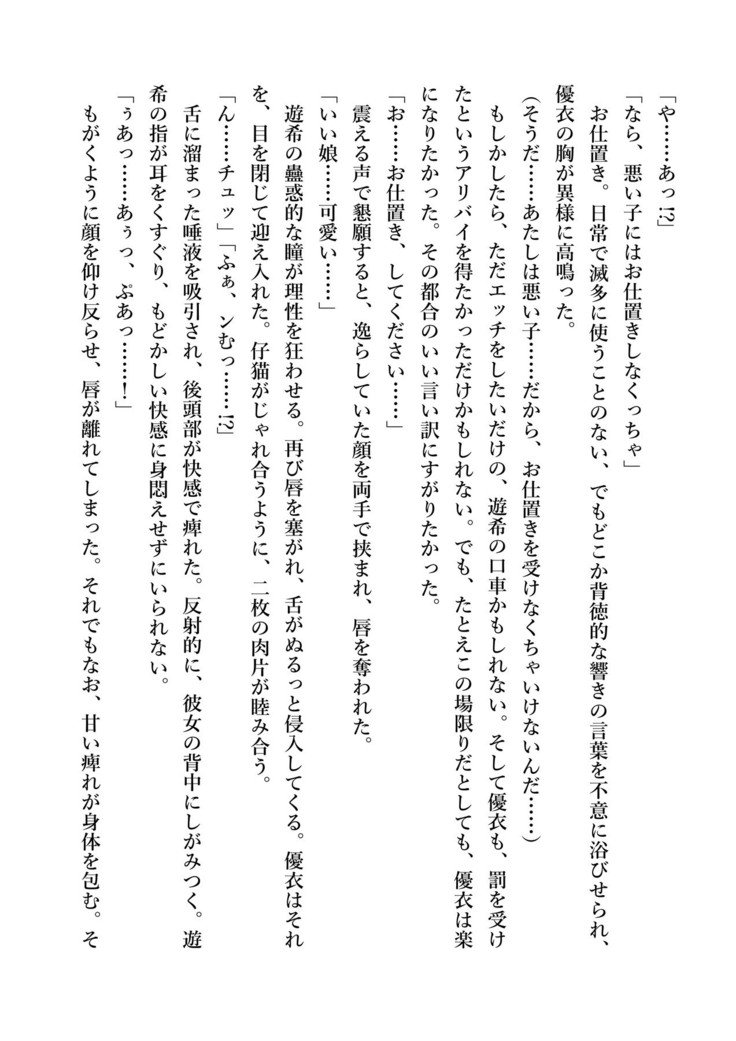 「や……あっ!?」
「なら、悪い子にはお仕置きしなくっちゃ」
　お仕置き。日常で滅多に使うことのない、でもどこか背徳的な響きの言葉を不意に浴びせられ、
優衣の胸が異様に高鳴った。
(そうだ……あたしは悪い子……だから、お仕置きを受けなくちゃいけないんだ……)
　もしかしたら、ただエッチをしたいだけの、遊希の口車かもしれない。そして優衣も、罰を受け
たというアリバイを得たかっただけかもしれない。でも、たとえこの場限りだとしても、優衣は楽
になりたかった。その都合のいい言い訳にすがりたかった。
「お……お仕置き、してください……」
　震える声で懇願すると、逸らしていた顔を両手で挟まれ、唇を奪われた。
「いい娘……可愛い……」
　遊希の蠱惑的な瞳が理性を狂わせる。再び唇を塞がれ、舌がぬるっと侵入してくる。優衣はそれ
を、目を閉じて迎え入れた。仔猫がじゃれ合うように、二枚の肉片が睦み合う。
「ん……チュッ」「ふぁ、ンむっ……!?」
　舌に溜まった唾液を吸引され、後頭部が快感で痺れた。反射的に、彼女の背中にしがみつく。遊
希の指が耳をくすぐり、もどかしい快感に身悶えせずにいられない。
「ぅあっ……あぅっ、ぷあっ……!」
　もがくように顔を仰け反らせ、唇が離れてしまった。それでもなお、甘い痺れが身体を包む。そ